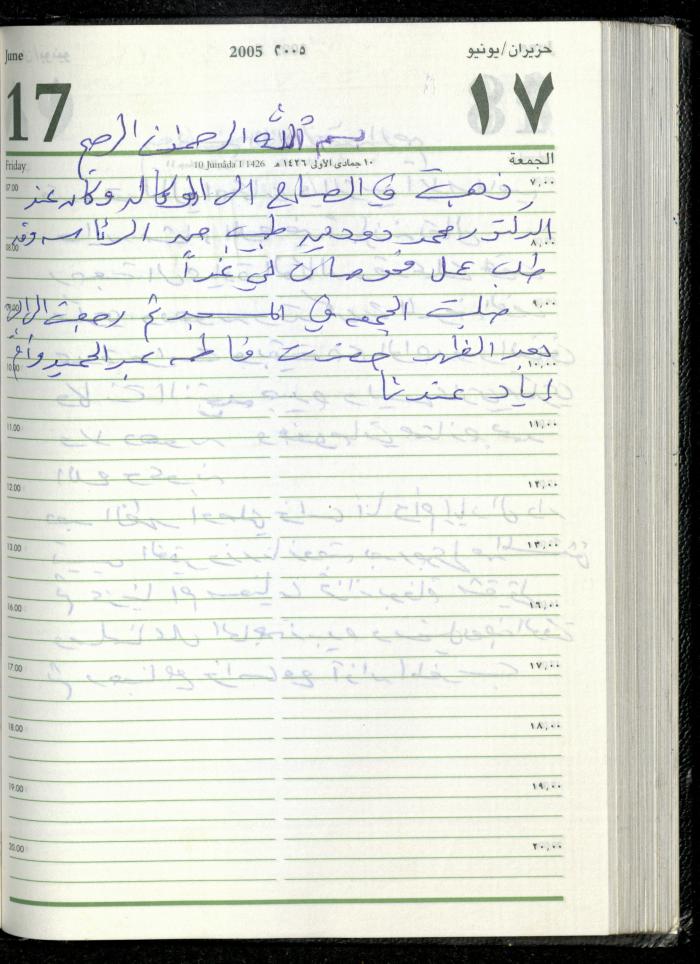 June 2005 ٢٠٠٥ حزيران/يونيو
17 ١٧
بسم الله الرحمن الرحيم
Friday 10 Jumâda I 1426 ١٠ جمادى الأولى ١٤٢٦ هـ الجمعة
07.00 ٧,٠٠
ذهبت في الصباح الى الوكاله وكان عند
الدكتور محمد طبيب الرئاسه وقد
08.00 ٨,٠٠
طلب عمل فحوصات لي غداً
09.00 ٩,٠٠
صليت الجمعه في المسجد ثم رجعت الى
بعد الظهر حضرت فاطمه عبد الحميد وأم
10.00 ١٠,٠٠
إياد عندنا
11.00 ١١,٠٠
12.00 ١٢,٠٠
13.00 ١٣,٠٠
16.00 ١٦,٠٠
17.00 ١٧,٠٠
18.00 ١٨,٠٠
19.00 ١٩,٠٠
20.00 ٢٠,٠٠